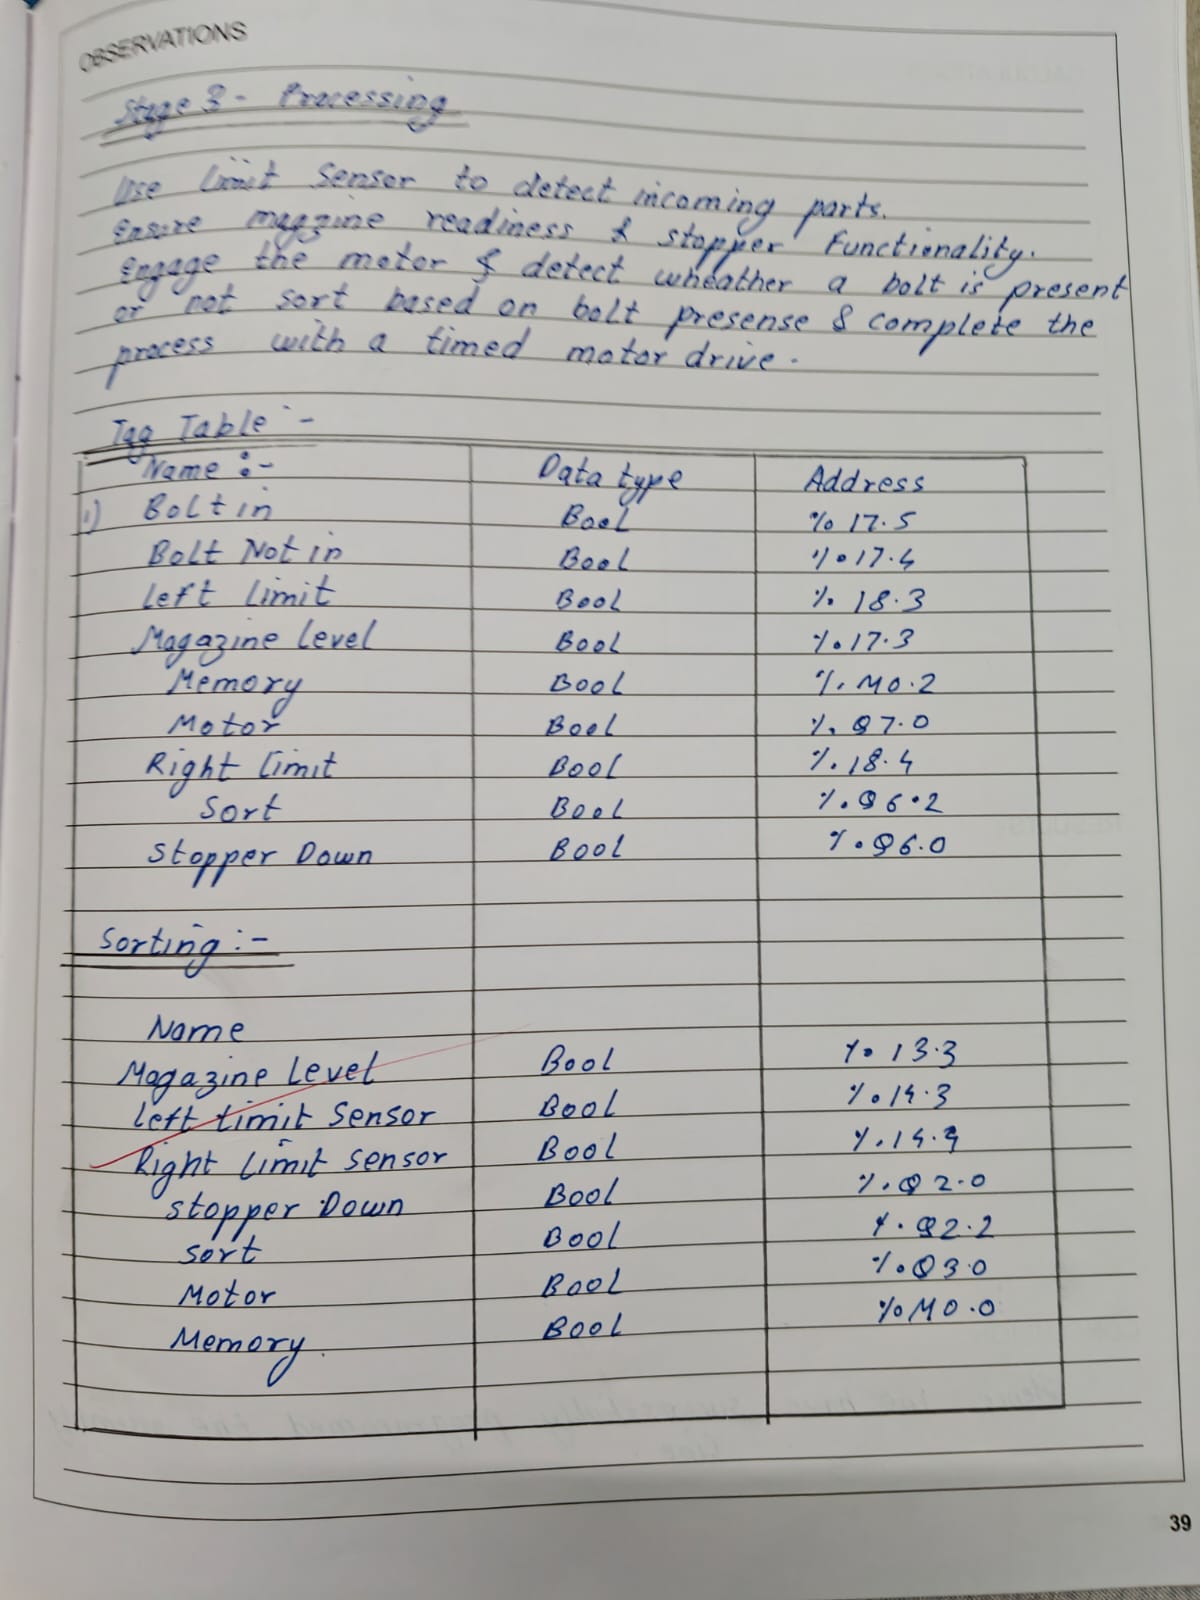 OBSERVATIONS
Stage 3 - Processing
Use Limit Sensor to detect incoming parts.
Ensure magzine readiness & stopper Functionality.
Engage the motor & detect wheather a bolt is present
or not sort based on bolt presense & complete the
process with a timed motor drive.
Tag Table :-
Name :- Data type Address
1) Bolt in Bool % 17.5
Bolt Not in Bool %17.4
Left Limit Bool % 18.3
Magazine Level Bool %17.3
Memory Bool %M0.2
Motor Bool %Q7.0
Right Limit Bool %18.4
Sort Bool %Q6.2
Stopper Down Bool %Q6.0
Sorting :-
Name
Magazine Level Bool %13.3
Left Limit Sensor Bool %14.3
Right Limit Sensor Bool %14.4
Stopper Down Bool %Q2.0
Sort Bool %Q2.2
Motor Bool %Q3.0
Memory. Bool %M0.0
39